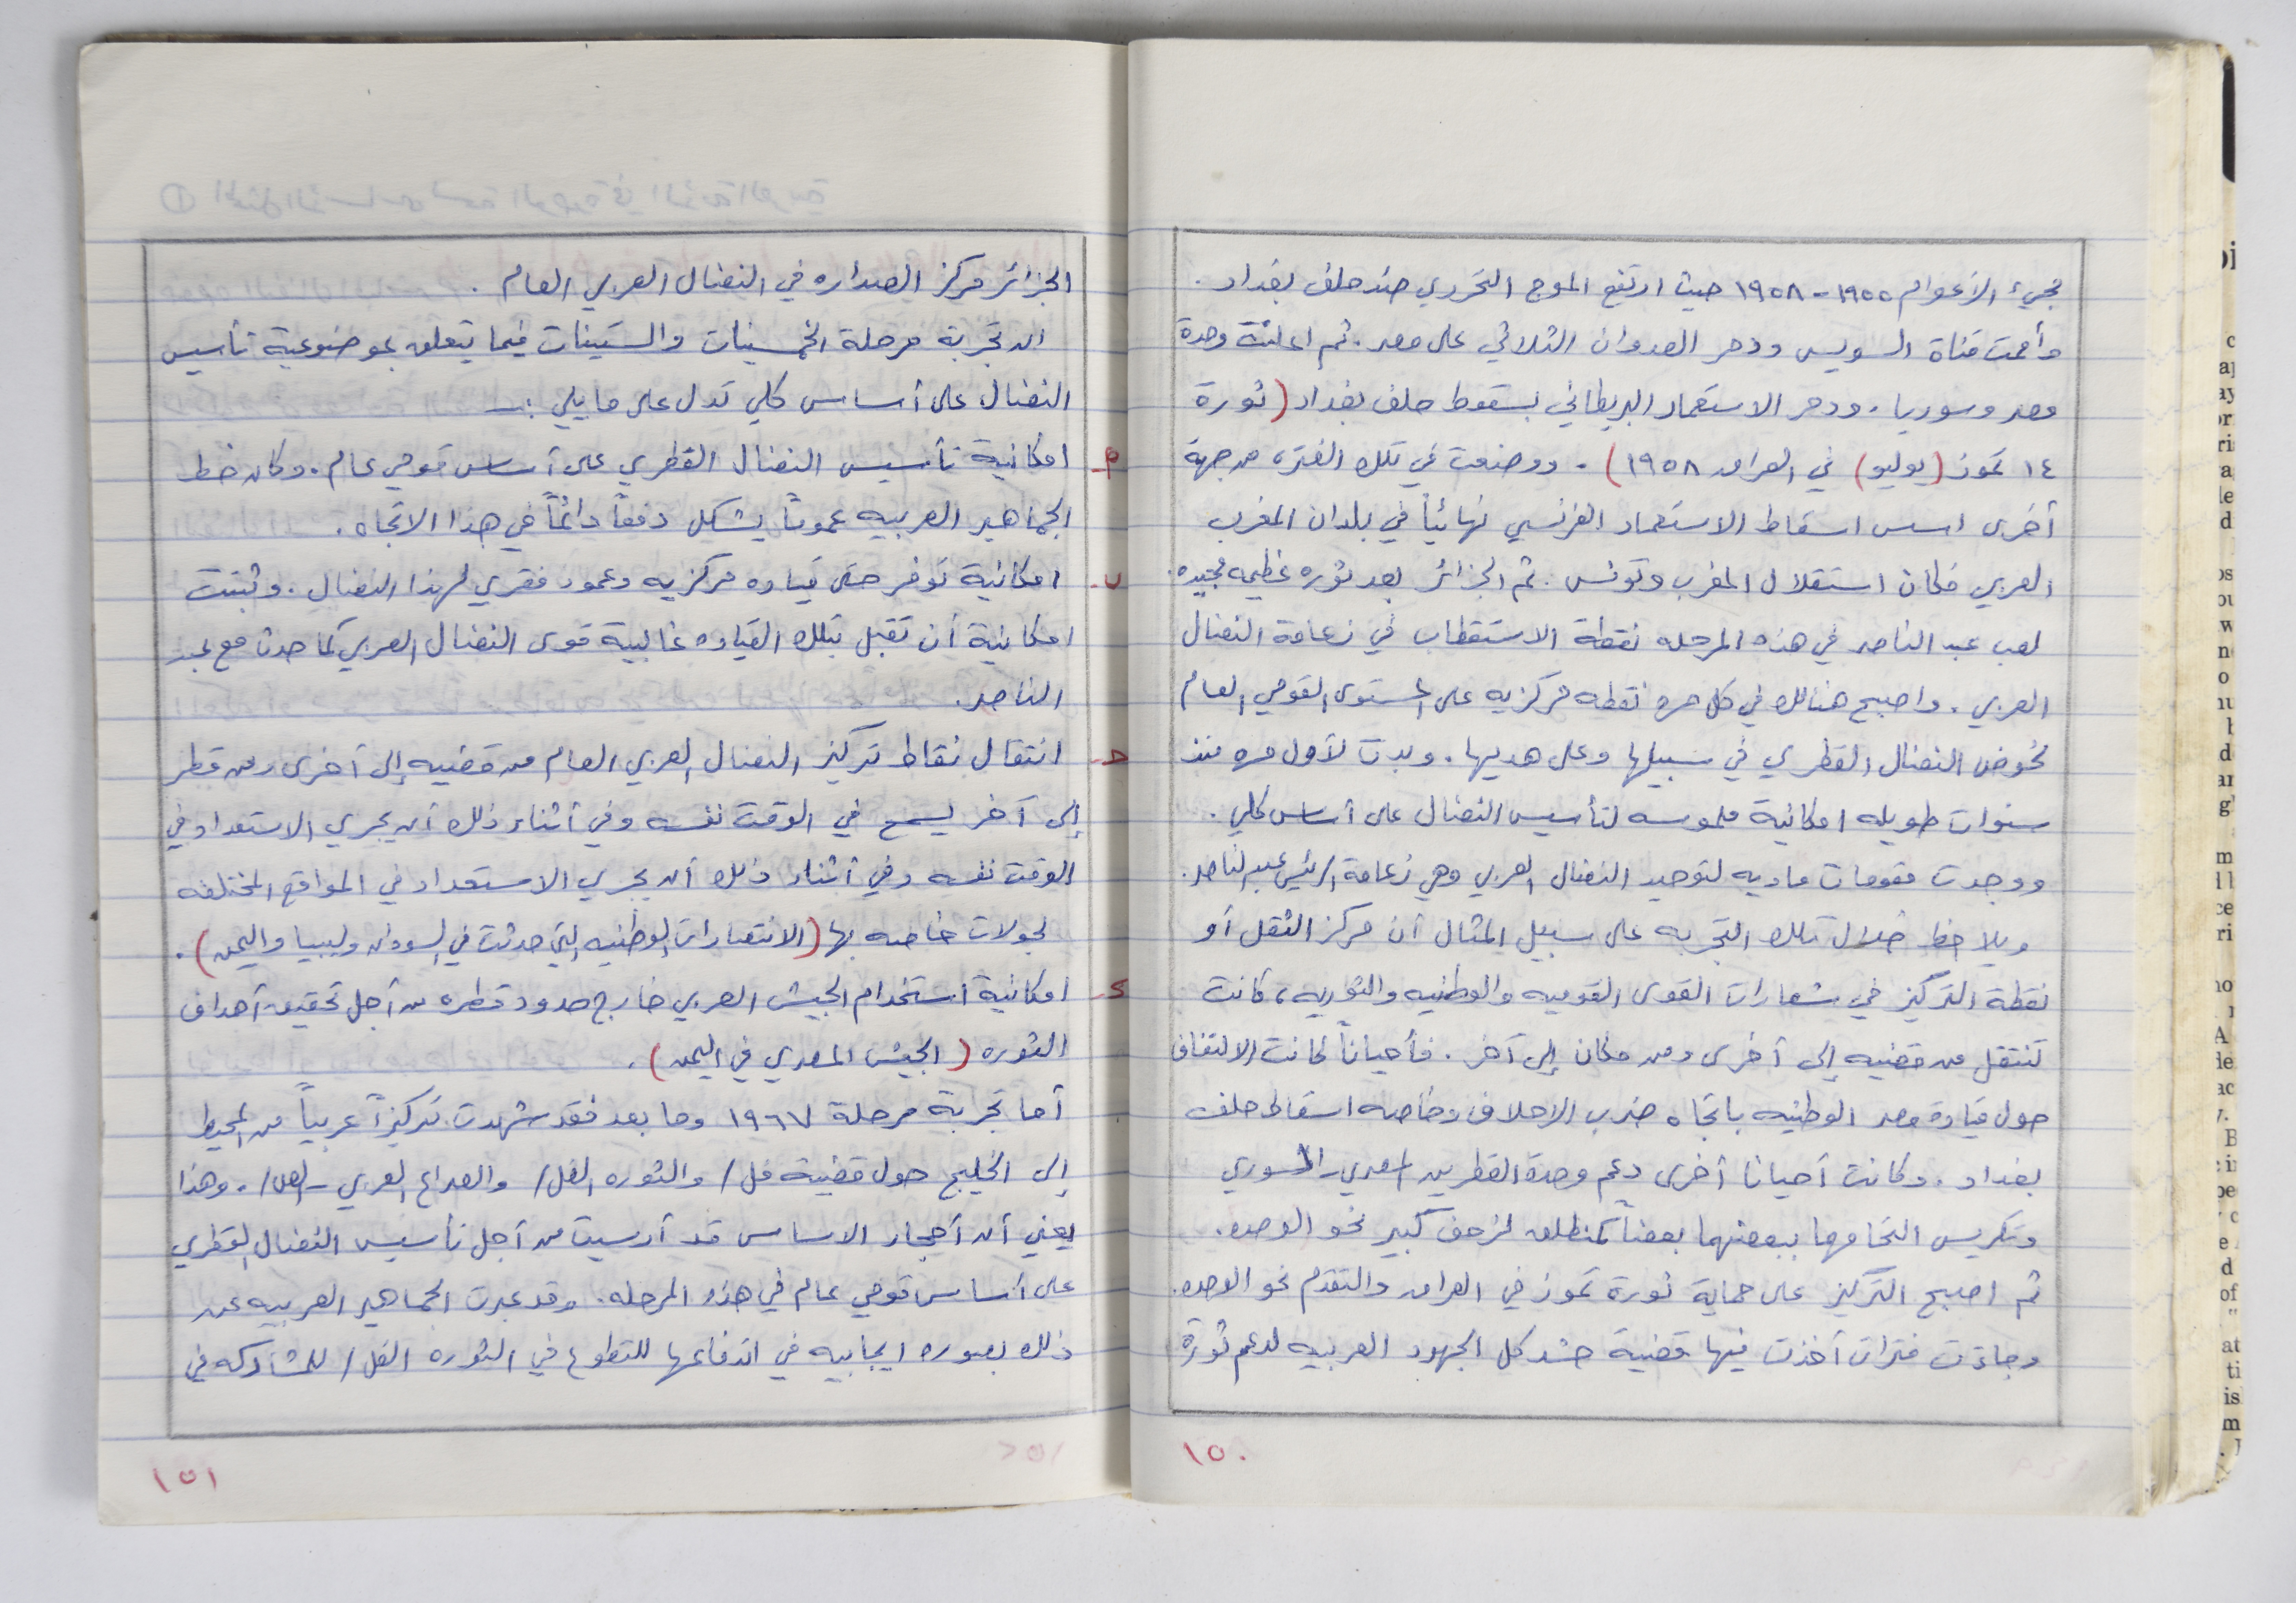 مجيء الأعوام ١٩٥٥ - ١٩٥٨ حيث ارتفع الموج التحرري ضد حلف بغداد .
وأممت قناة السويس ودحر العدوان الثلاثي على مصر . ثم اعلنت وحدة
مصر وسوريا . ودحر الاستعمار البريطاني بسقوط حلف بغداد ( ثورة
١٤ تموز ( يوليو ) في العراق ١٩٥٨ ) . ووضعت في تلك الفتره من جهة
أخرى اسس اسقاط الاستعمار الفرنسي نهائياً في بلدان المغرب
العربي فكان استقلال المغرب وتونس . ثم الجزائر بعد ثوره عظيمه مجيده .
لعب عبد الناصر في هذه المرحله نقطة الاستقطاب في زعامة النضال
العربي . واصبح هنالك في كل مره نقطه مركزيه على المستوى القومي العام
تخوض النضال القطري في سبيلها وعلى هديها . وبدت لأول مره منذ
سنوات طويله امكانية ملموسه لتأسيس النضال على أساس كلي .
ووجدت مقومات ماديه لتوحيد النضال العربي وهي زعامة الرئيس عبد الناصر .
ويلاحظ خلال تلك التجربه على سبيل المثال أن مركز الثقل أو
نقطة التركيز في شعارات القوى القوميه والوطنيه والثوريه ، كانت
تنتقل من قضيه إلى أخرى ومن مكان إلى آخر . فأحياناً كانت الالتفاف
حول قيادة مصر الوطنيه باتجاه ضرب الاحلاف وخاصه اسقاط حلف
بغداد . وكانت أحيانا أخرى دعم وحدة القطرين المصري - السوري
وتكريس التحامهما ببعضهما بعضاً كمنطلق لزحف كبير نحو الوحده .
ثم اصبح التركيز على حماية ثورة تموز في العراق والتقدم نحو الوحده .
وجاءت فترات أخذت فيها قضية حشد كل الجهود العربيه لدعم ثورة
١٥٠
الجزائر مركز الصداره في النضال العربي العام .
ان تجربة مرحلة الخمسينات والستينات فيما يتعلق بموضوعية تأسيس
النضال على أساس كلي تدل على ما يلي :ــ
م - امكانية تأسيس النضال القطري على أساس قومي عام . وكان ضغط
الجماهير العربيه عموماً يشكل دفعاً دائماً في هذا الاتجاه .
ب - امكانية توفر حتى قياده مركزيه وعمود فقري لهذا النضال . وثبتت
امكانية أن تقبل بتلك القياده غالبية قوى النضال العربي كما حدث مع عبد
الناصر .
حـ - انتقال نقاط تركيز النضال العربي العام من قضيه إلى أخرى ومن قطر
إلى آخر يسمح في الوقت نفسه وفي أثناء ذلك أن يجري الاستعداد في
الوقت نفسه وفي أثناء ذلك أن يجري الاستعداد في المواقع المختلفه
لجولات خاصه بها ( الانتصارات الوطنيه التي حدثت في السودان وليبيا واليمن ) .
د - امكانية استخدام الجيش العربي خارج حدود قطره من أجل تحقيق أهداف
الثوره ( الجيش المصري في اليمن ) .
أما تجربة مرحلة ١٩٦٧ وما بعد فقد شهدت تركيزاً عربياً من المحيط
إلى الخليج حول قضية فل / والثوره الفل / والصراع العربي - الص / . وهذا
يعني أن أحجار الاساس قد أرسيت من أجل تأسيس النضال القطري
على أساس قومي عام في هذه المرحله . وقد عبرت الجماهير العربيه عن
ذلك بصوره ايجابيه في اندفاعها للتطوع في الثوره الفل / للمشاركه في
١٥١